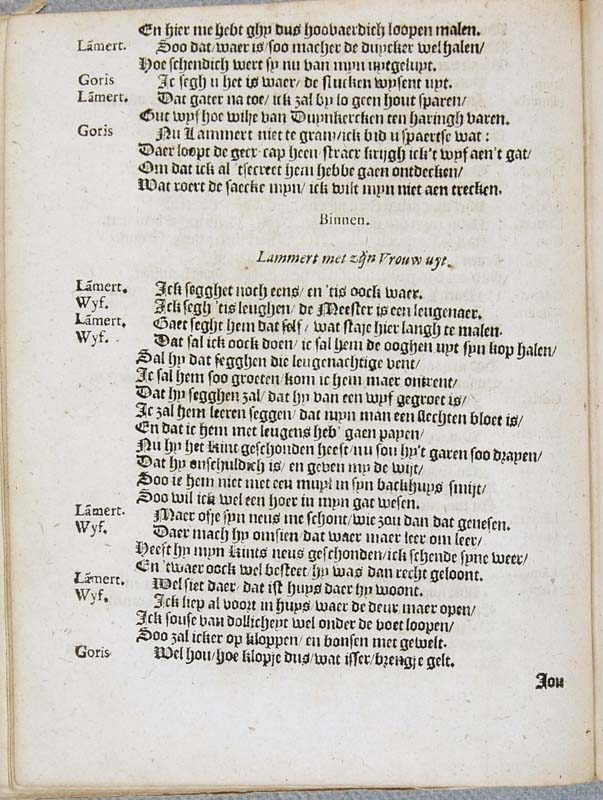 En hier me hebt ghy dus hoovaerdich loopen malen.
Lãmert. Soo dat waer is/ soo macher de duycker wel halen/
Hoe schendich wert sy nu van myn uytgeluyt.
Goris Ic segh u het is waer/ de stucken wysent uyt.
Lãmert. Dat gater na toe/ ick zal by lo geen hout sparen/
Gut wyf hoe wilje van Duynkercken ten haringh varen.
Goris Nu Lammert niet te gram/ ick bid u spaertse wat:
Daer loopt de geck-cap heen stracx krijgh ick't wyf aen't gat/
Om dat ick al 'tsecreet hem hebbe gaen ontdecken/
Wat roert de saecke myn/ ick wilt myn niet aen trecken.
Binnen.
Lammert met zijn Vrouw uyt.
Lãmert. Ick segghet noch eens/ en 'tis oock waer.
Wyf. Ick segh 'tis leughen/ de Meester is een leugenaer.
Lãmert. Gaet seght hem dat self/ wat staje hier langh te malen.
Wyf. Dat sal ick oock doen/ ic sal hem de ooghen uyt syn kop halen/
Sal hy dat segghen die leugenachtige vent/
Ic sal hem soo groeten/ kom ic hem maer ontrent/
Dat hy segghen zal/ dat hy van een wyf gegroet is/
Ic zal hem leeren seggen/ dat myn man een slechten bloet is/
En dat ie hem met leugens heb' gaen payen/
Nu hy het kint geschonden heeft/ nu sou hy't garen soo drayen/
Dat hy onschuldich is/ en geven my de wijt/
Soo ie hem niet met een muyl in syn backhuys smijt/
Soo wil ick wel een hoer in myn gat wesen.
Lãmert. Maer ofje syn neus me schont/ wie zou dan dat genesen.
Wyf. Daer mach hy omsien/ dat waer maer leer om leer/
Heeft hy myn kints neus geschonden/ ick schende syne weer/
En 'twaer oock wel besteet/ hy was dan recht geloont.
Lãmert. Wel siet daer/ dat ist huys daer hy woont.
Wyf. Ick liep al voort in huys waer de deur maer open/
Ick souse van dollicheyt wel onder de voet loopen/
Soo zal icker op kloppen/ en bonsen met gewelt.
Goris Wel hou/ hoe klopje dus/ wat isser/ brengje gelt.
Jou